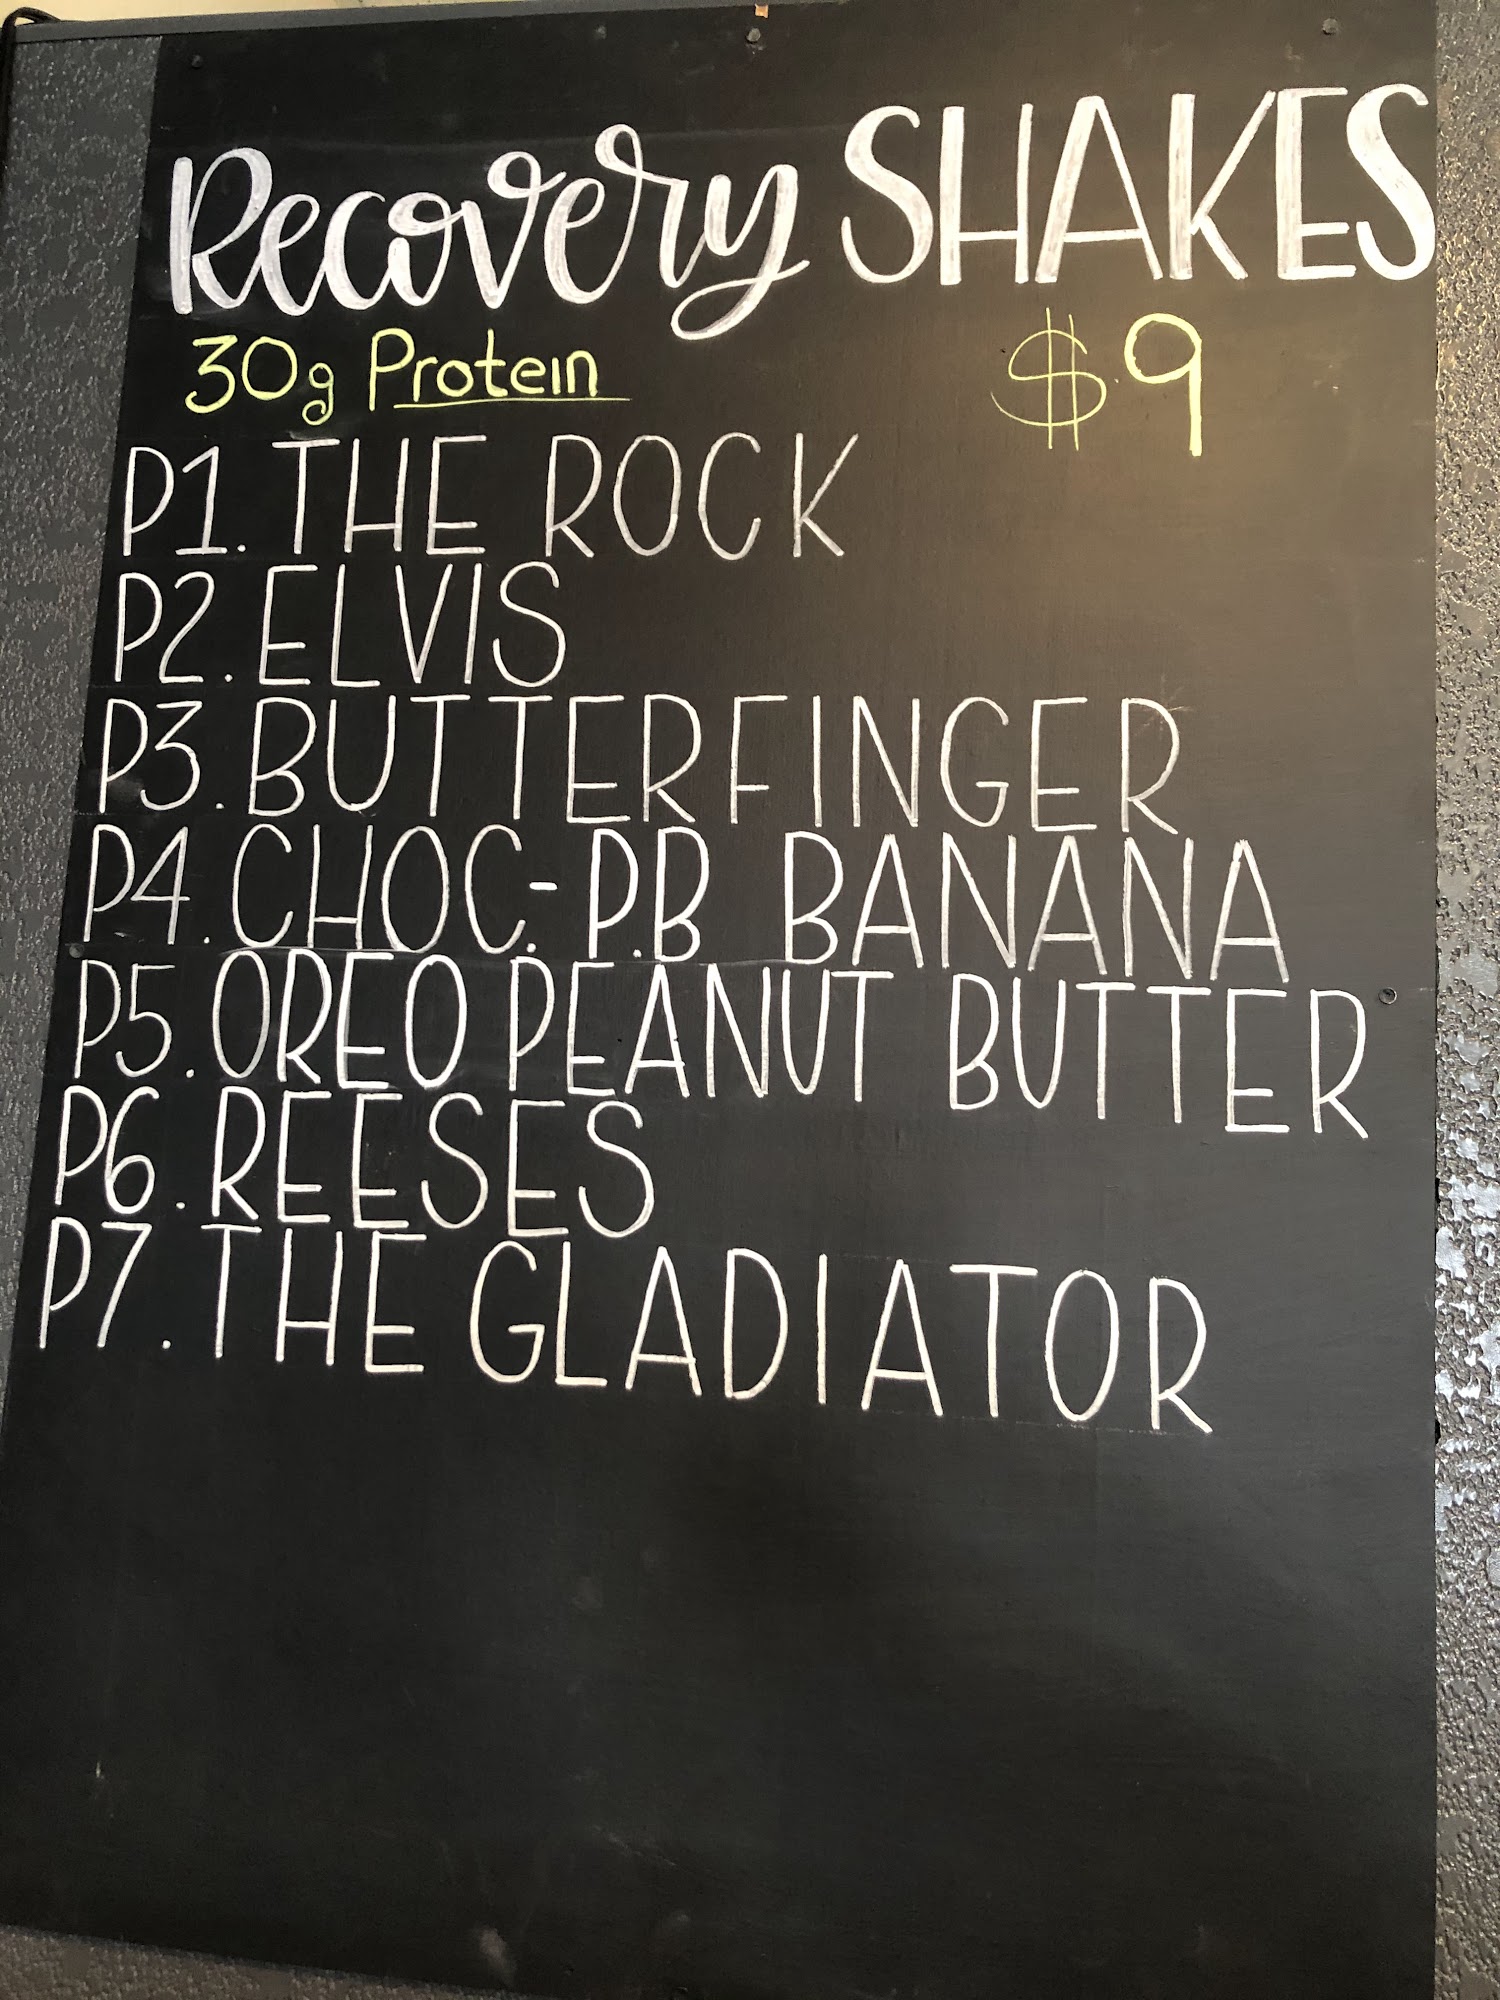 Recovery SHAKES
30g Protein $9
P1. THE ROCK
P2. ELVIS
P3. BUTTERFINGER
P4. CHOC.-P.B BANANA
P5. OREO PEANUT BUTTER
P6. REESES
P7. THE GLADIATOR